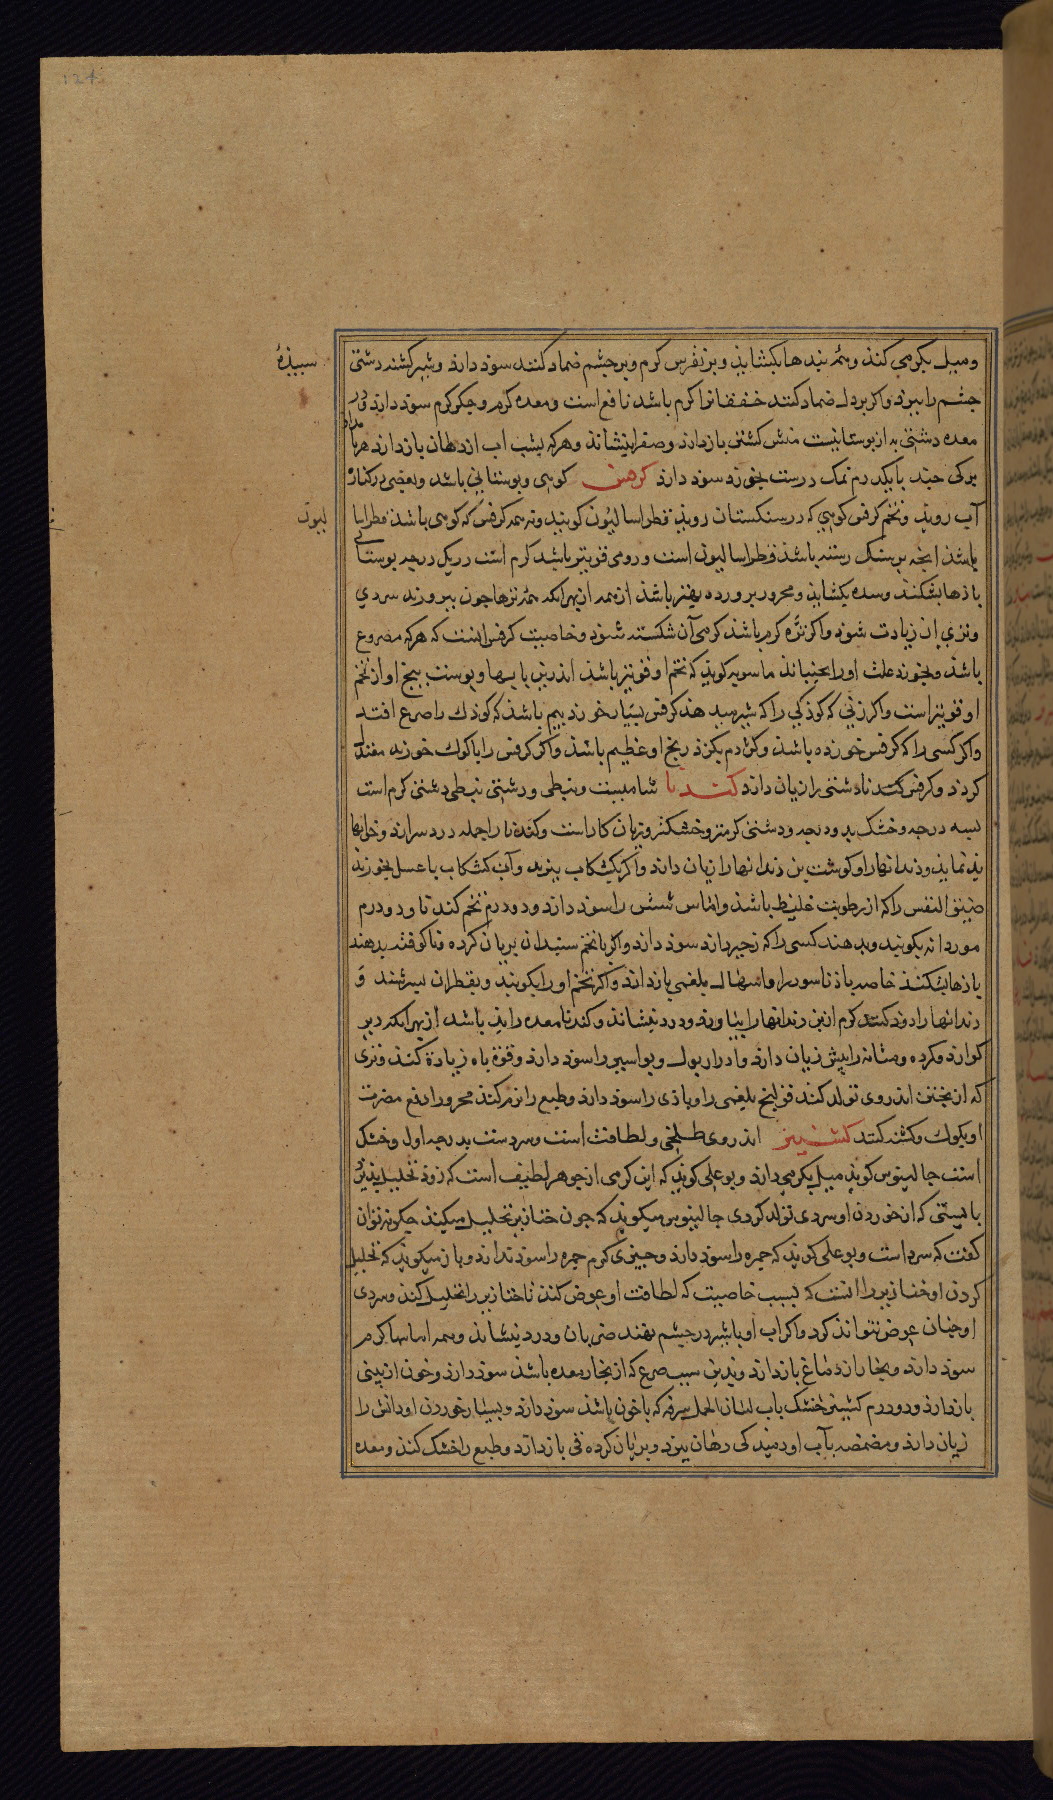 124
ومیل بکرمی کند وهمه بندها بکشاید وبر نقرس کرم وبر چشم ضماد کنند سود دارد وشیر کشنه دشتی
سبیذهٔ
چشم را ببرد واکر بر دل ضماد کنند خفقانرا کرم باشد نافع است ومعده کرم وجکر کرم سود دارد ودر
معده دشتی به از بوستانیست منش کشتن بازدارد وصفرا بنشاند وهرکه بشب اب از دهان باز دارد هر بامداد
برکی چند با یکدرم نمک درست بخورد سود دارد کرفس کوهی وبوستانی باشد وبعضی برکناره
آب روید وتخم کرفس کوهی که در سنکستان روید فطراسالیون کویند ونه همه کرفس که کوهی باشد فطراسا
لیون
باشد انچه بر سنک رسته باشد فطراسالیون است ورومی قویتر باشد کرم است در یک درجه بوستانی
باذها بشکند وسده بکشاید ومحرور پرورده بهتر باشد از همه از بهر انکه همه تره‌ها چون بپرورند سردی
وتری ان زیادت شود واکر تره کرم باشد کرمی آن شکسته شود وخاصیت کرفس انست که هرکه مصروع
باشد وبخورد علت اورا بجنباند ماسویه کوید که تخم او قویتر باشد اندرین بابها وپوست بیخ او از تخم
او قویتر است واکر زنی که کودکی را که شیر میدهد کرفس بسیار خورد بیم باشد که کودک را صرع افتد
واکر کسی را که کرفس خورده باشد وکژدم بکزد رنج او عظیم باشد واکر کرفس را با کوک خورند معتدل
کردد وکرفس کنده نا دشتی را زیان دارد کندنا شامیست ونبطی ودشتی نبطی دشتی کرم است
بسه درجه وخشک بدو درجه ودشتی کرمتر وخشکتر وزیان کارست وکندنا را جمله درد سر ارد وخوابها
بد نماید ودندانها را وکوشت بن دندانها را زیان دارد واکر بکشکاب بپزند وآن کشکاب با عسل بخورند
ضیق النفس را که از رطوبت غلیظ باشد واماس شش را سود دارد ودو درم تخم کندنا ودو درم
موردانه بکویند وبدهند کسی را که زحیر دارد سود دارد واکر با تخم سپندان بریان کرده وناکوفته بدهند
باذها بشکند خاصه باذ ناسور را واسهال بلغمی باز دارد واکر تخم اورا بکویند وبقطران بسرشند و
دندانها را دود کنند کرم از بن دندانها را بیاورد ودرد بنشاند وکندنا معده را بد باشد از بهر انکه دیر
کوارد وکرده ومثانه ریش زیان دارد وادرار بول وبواسیر را سود دارد وقوة باه زیادة کند وتری
که از پختن اندروی تولد کند قولنج بلغمی را وبادی را سود دارد وطبع را نرم کند محرور را دفع مضرت
او بکوک وکشنه کنند کشنیز اندروی طلخی ولطافت است وسردست بدرجه اول وخشک
است جالینوس کوید میل بکرمی دارد وبوعلی کوید که این کرمی از جوهر لطیف است که زود تحلیل پذیرد
بایستی که از خوردن او سردی تولد کردی جالینوس میکوید که چون خنازیر تحلیل میکند چکونه توان
کفت که سرد است وبوعلی کوید که حمره را سود دارد وچیزی کرم حمره را سود ندارد وباز میکوید که تحلیل
کردن او خنازیر را انست که بسبب خاصیت که لطافت او عوض کند تا خنازیر را تحلیل کند وسردی
او چنان عوض نتواند کرد واکر اب او با شیر در چشم نهند ضربان ودرد بنشاند وهمه اماسها کرم
سود دارد وبخار از دماغ باز دارد وبدین سبب صرع که از بخار معده باشد سود دارد وخون از بینی
باز دارد ودو درم کشنیز خشک باب لسان الحمل سرفه که با خون باشد سود دارد وبسیار خوردن او دانش را
زیان دارد ومضمضه بآب او دمیدکی دهان ببرد وبریان کرده قی باز دارد وطبع را خشک کند ومعده